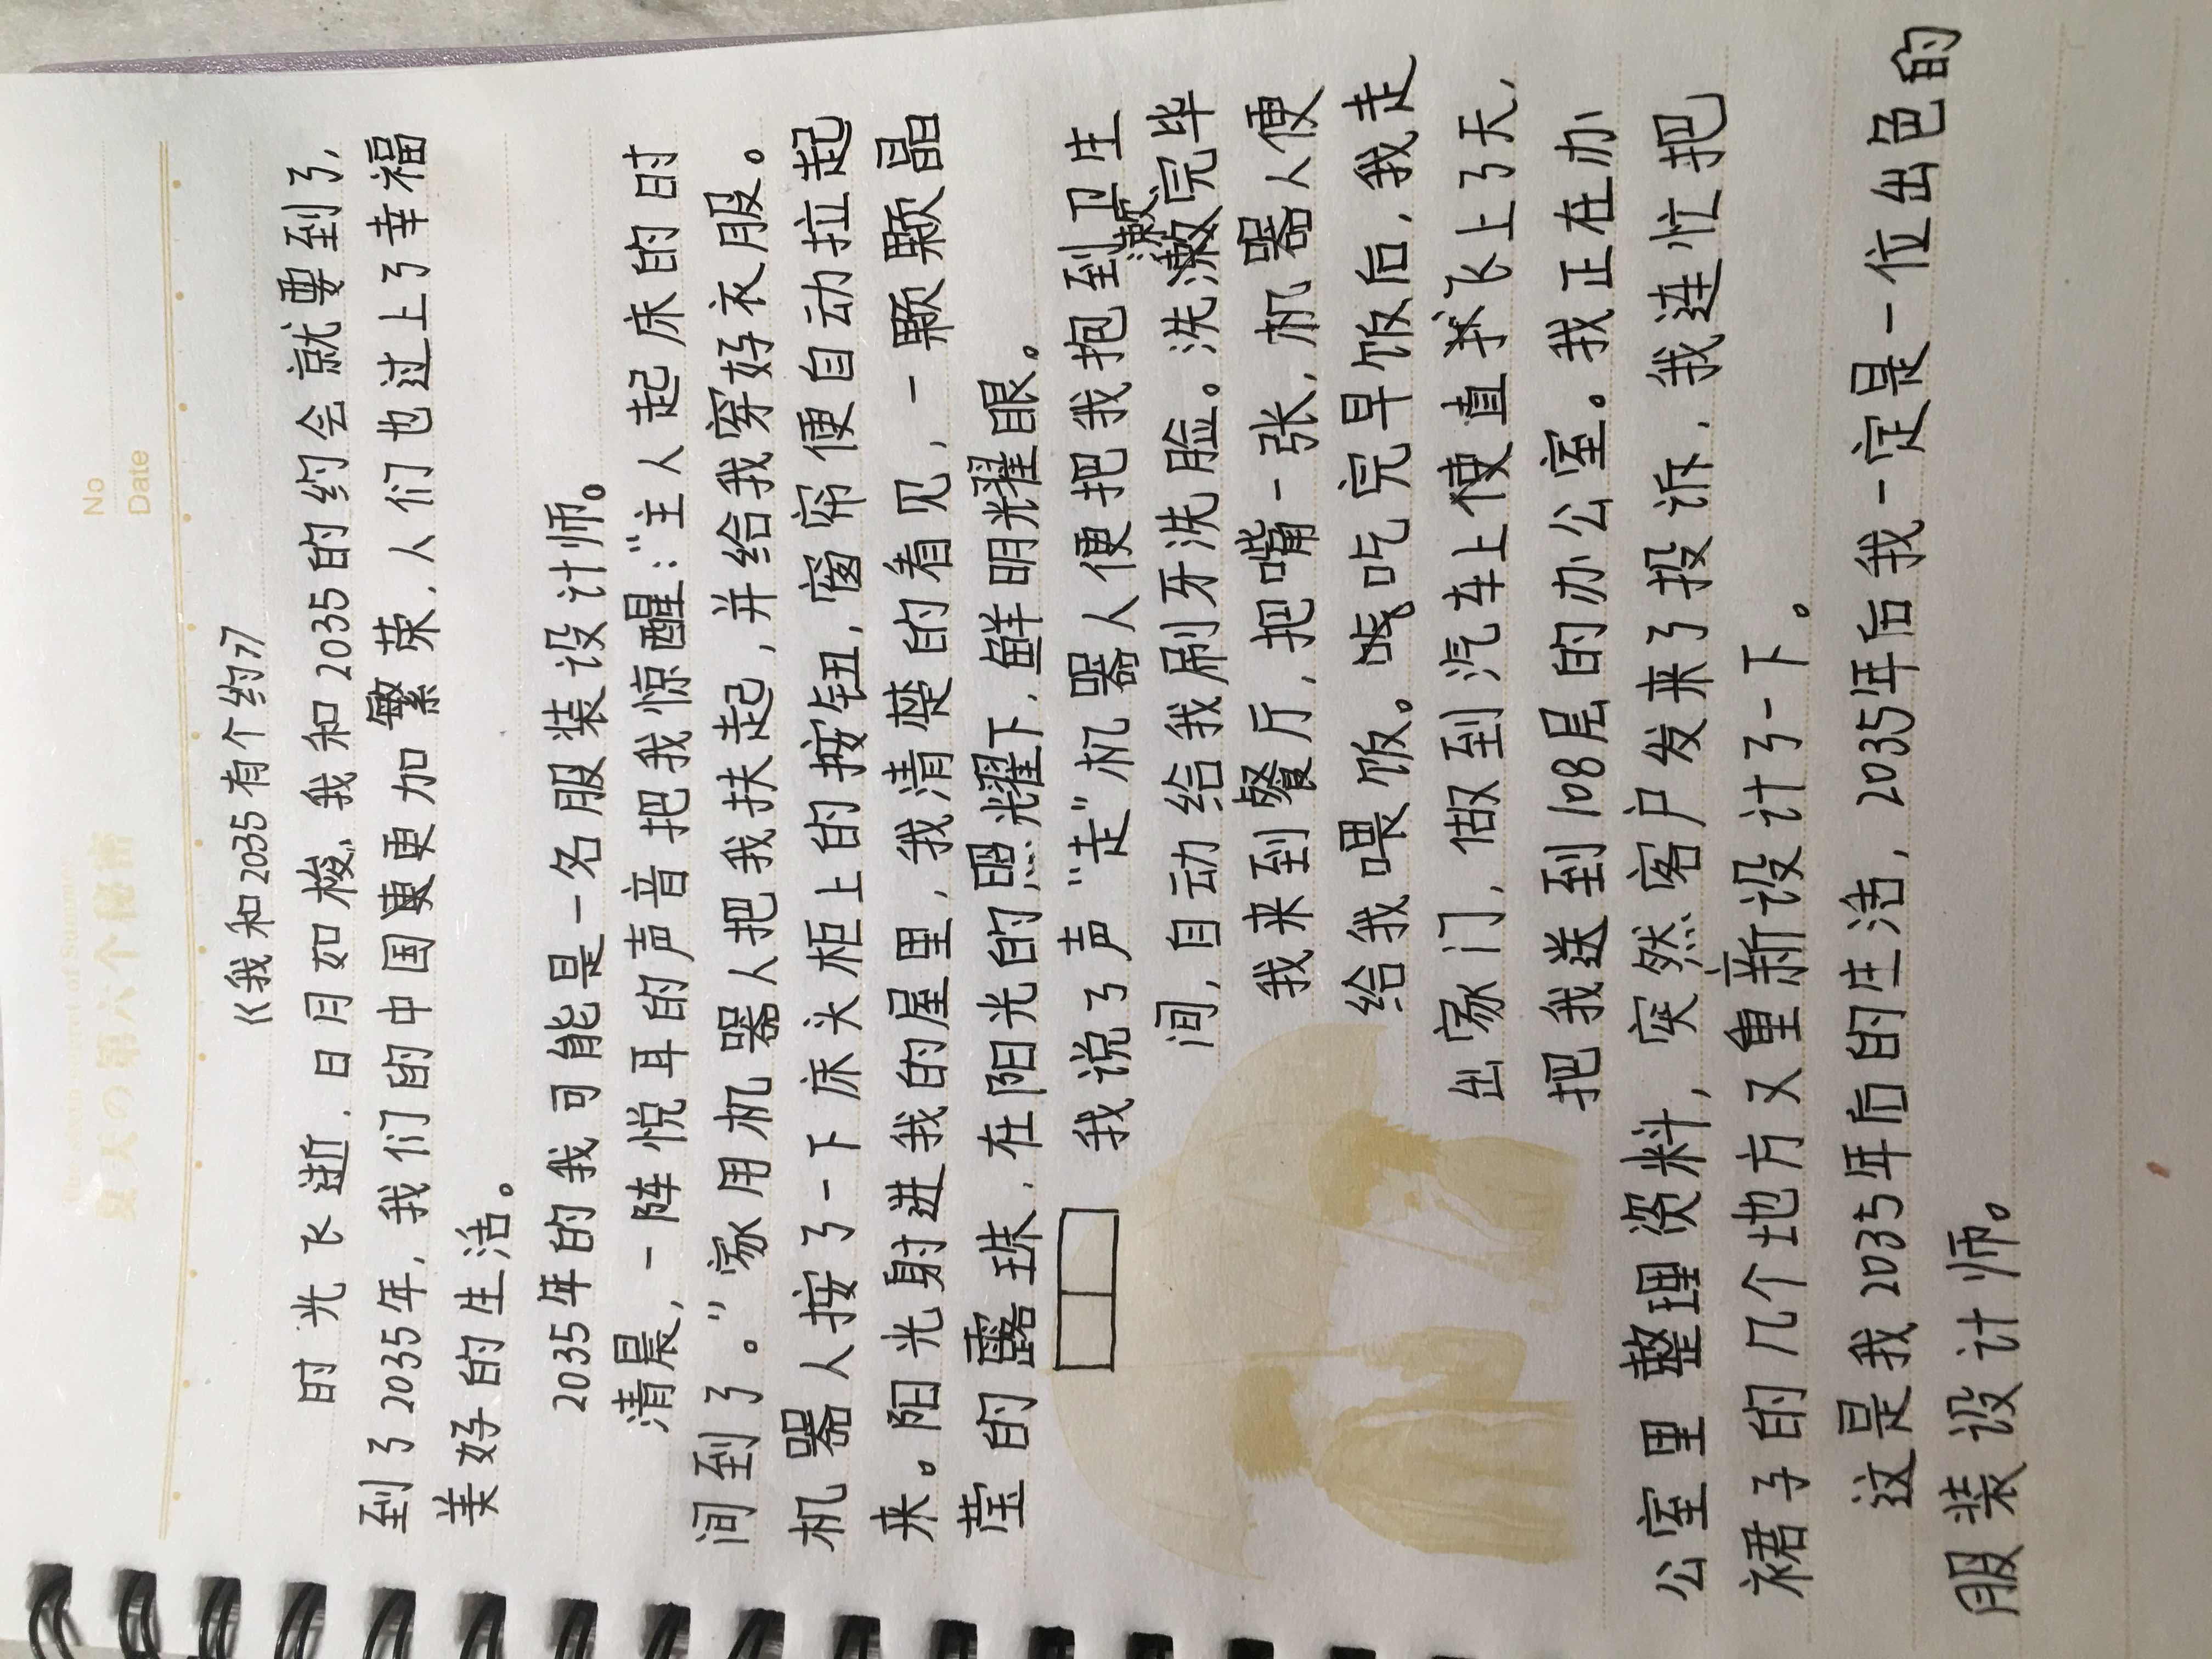 The sixth secret of Summer
夏天の第六个秘密
No
Date
《我和2035有个约》
时光飞逝，日月如梭，我和2035的约会就要到了，
到了2035年，我们的中国更更加繁荣，人们也过上了幸福
美好的生活。
2035年的我可能是一名服装设计师。
清晨，一阵悦耳的声音把我惊醒：“主人起床的时
间到了。”家用机器人把我扶起，并给我穿好衣服。
机器人按了一下床头柜上的按钮，窗帘便自动拉起
来。阳光射进我的屋里，我清楚的看见，一颗颗晶
莹的露珠，在阳光的照耀下，鲜明耀眼。
我说了声“走”机器人便把我抱到卫生
间，自动给我刷牙洗脸。洗漱完毕
我来到餐厅，把嘴一张，机器人便
给我喂饭。吃完早饭后，我走
出家门，做到汽车上使直飞上了天，
把我送到108层的办公室。我正在办
公室里整理资料，突然客户发来了投诉，我连忙把
裙子的几个地方又重新设计了一下。
这是我2035年后的生活，2035年后我一定是一位出色的
服装设计师。